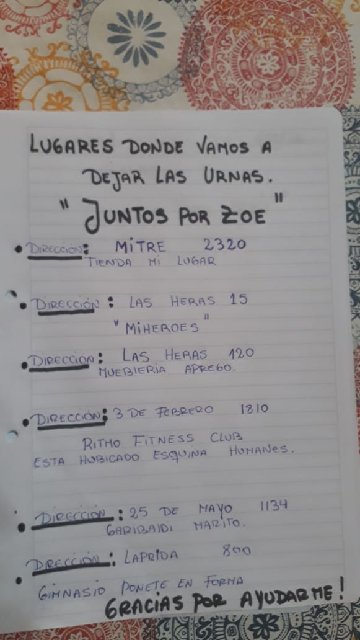 LUGARES DONDE VAMOS A
DEJAR LAS URNAS.
"JUNTOS POR ZOE"
• DIRECCION: MITRE 2320
TIENDA MI LUGAR
• DIRECCIÓN: LAS HERAS 15
"MIHEROES"
• DIRECCIÓN: LAS HERAS 120
MUEBLERIA APREGO.
• DIRECCIÓN: 3 DE FEBRERO 1810
RITMO FITNESS CLUB
ESTA HUBICADO ESQUINA HUMANES.
• DIRECCIÓN: 25 DE MAYO 1134
GARIBALDI MARITO.
• DIRECCIÓN: LAPRIDA 800
GIMNASIO PONETE EN FORMA
GRACIAS POR AYUDARME!